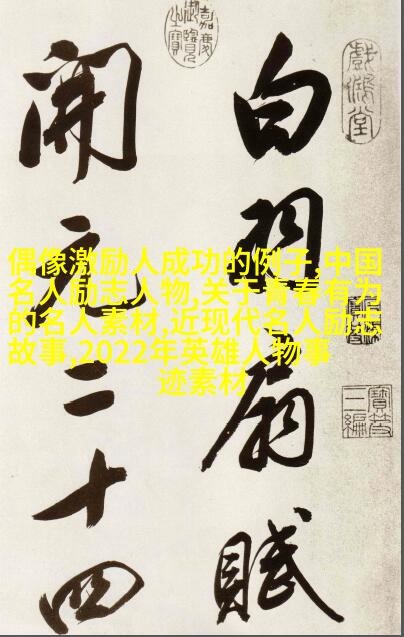 白羽扇賦
開元二十四
嘉慶御覽之寶
戲鴻堂
寶笈三編
偶像激励人成功的例子,中国
名人励志人物,关于青春有为
的名人素材,近现代名人励志
故事,2022年英雄人物事
迹素材